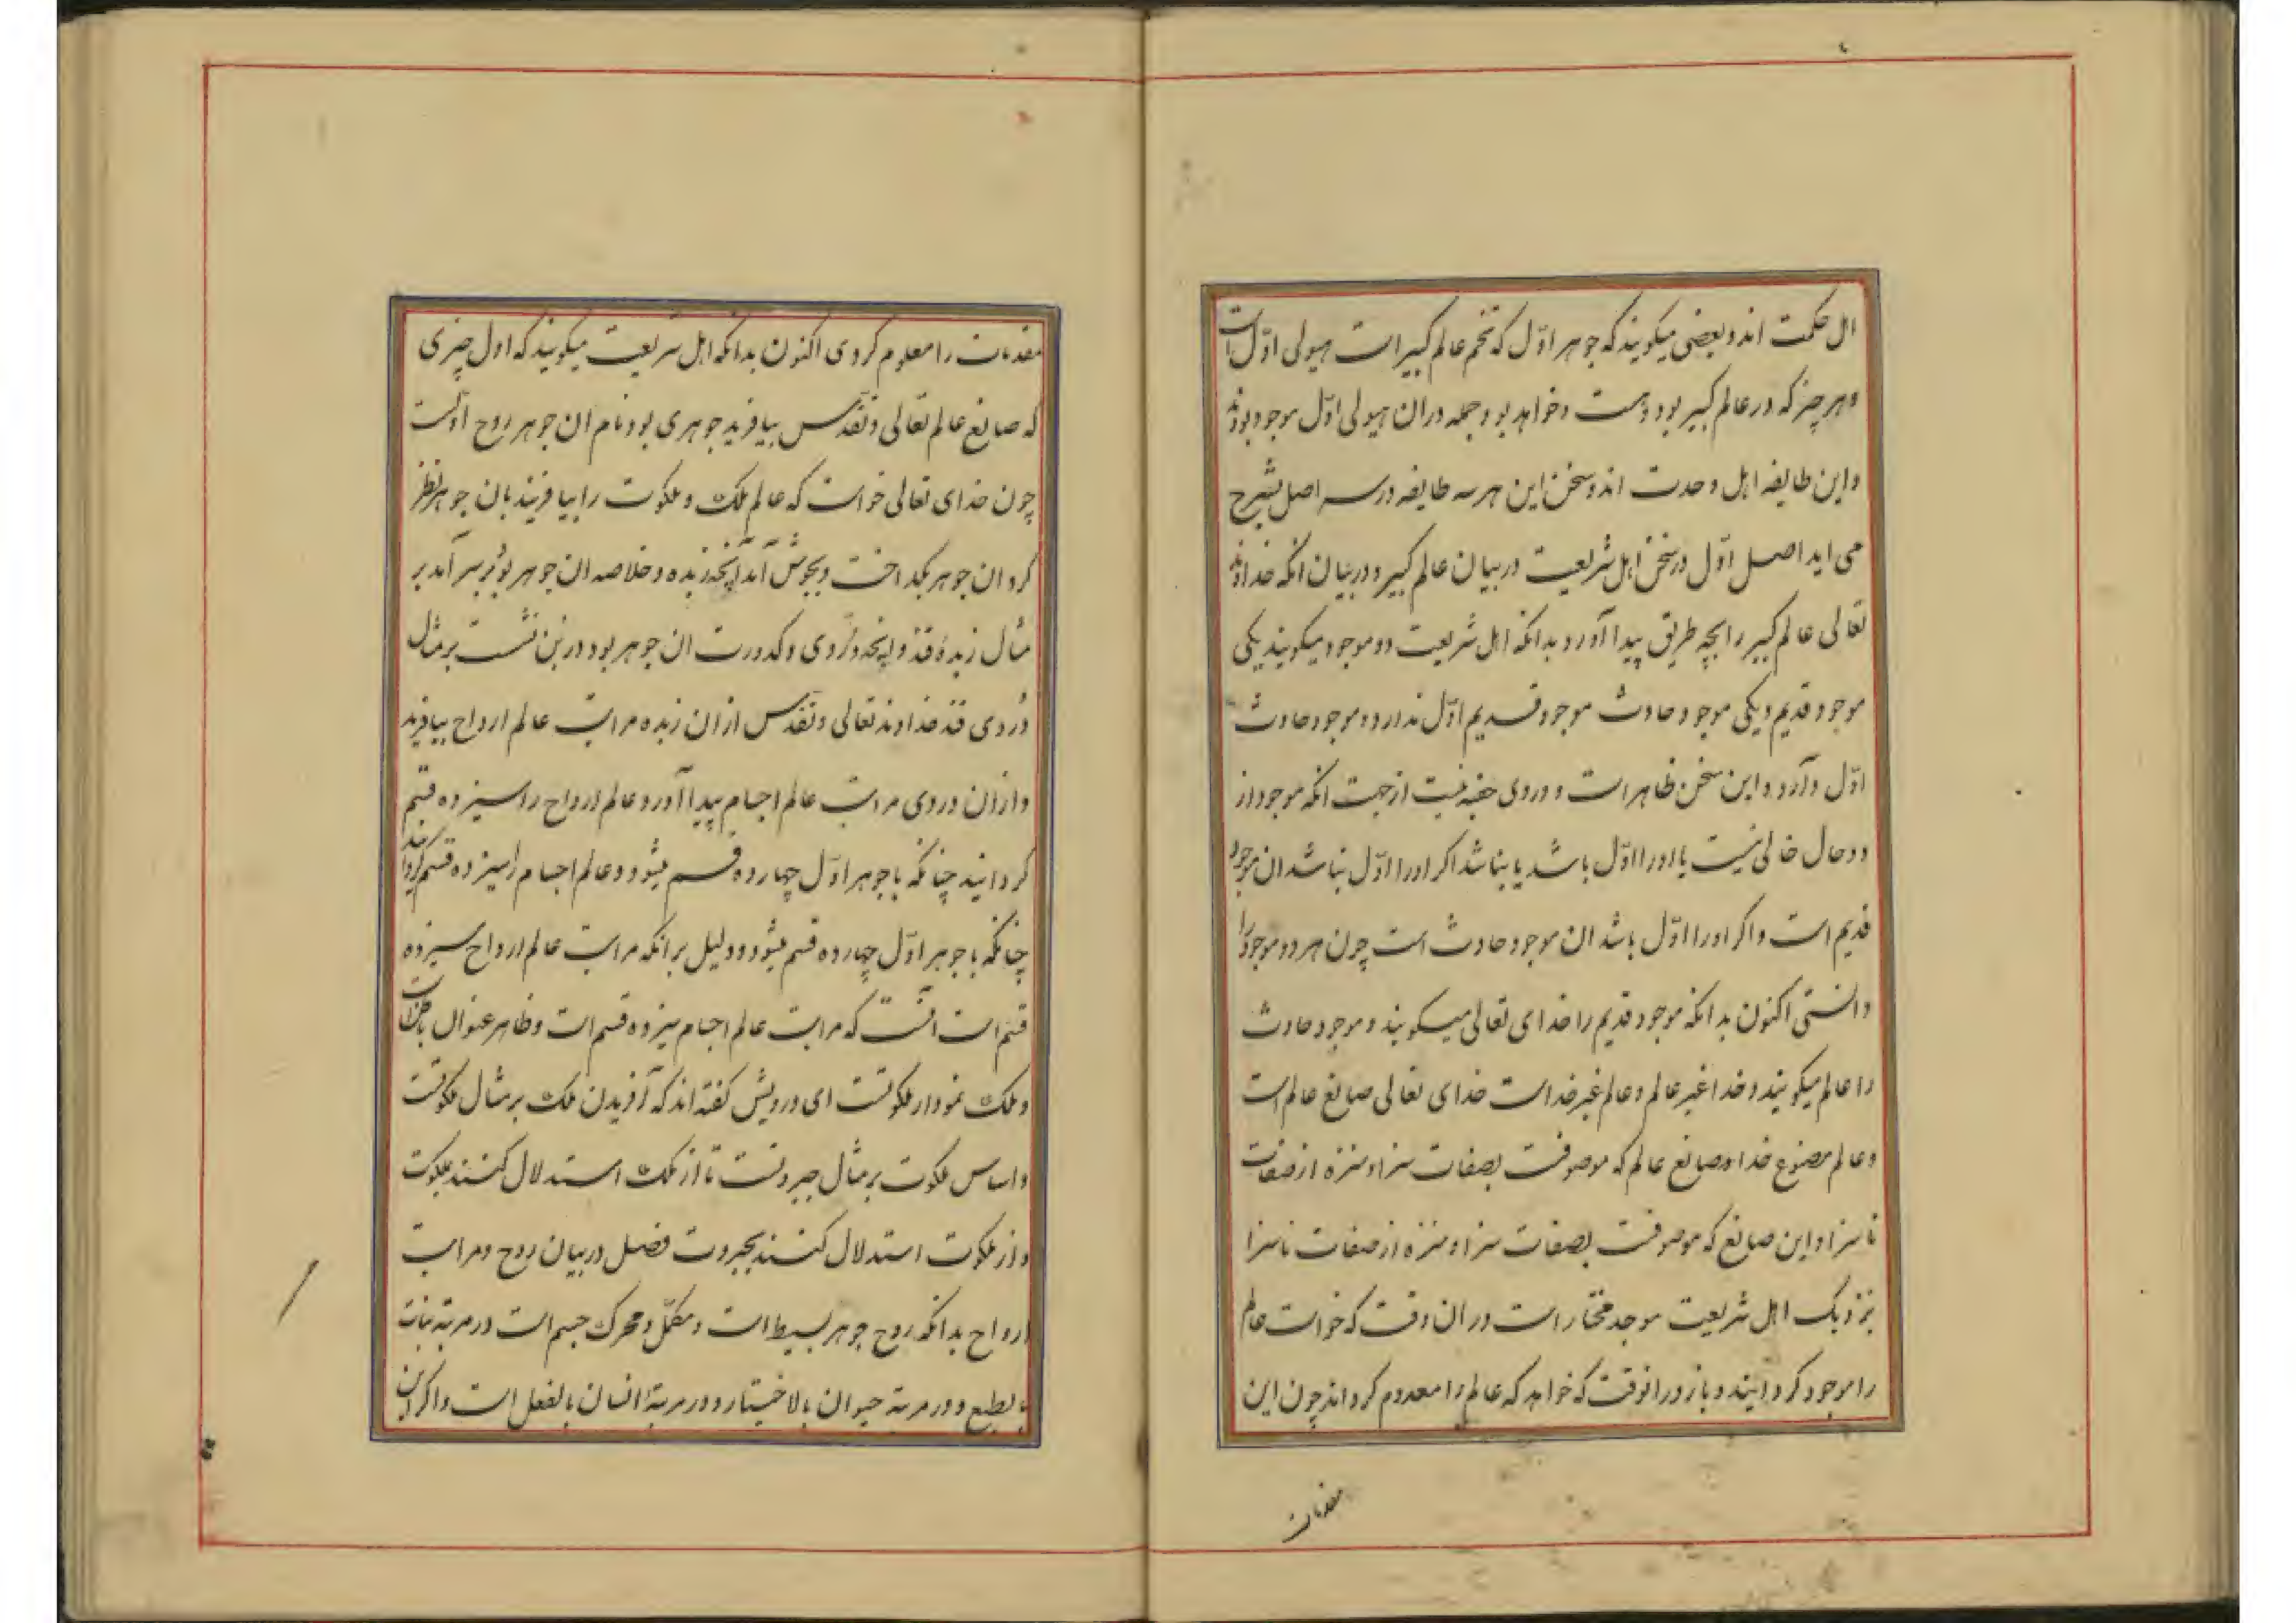 اهل حکمت اند و بعضی میکویند که جوهر اوّل که تخم عالم کبیر است هیولی اوّل است
و هر چیز که در عالم کبیر بود و هست و خواهد بود جمله در ان هیولی اوّل موجود بودند
و این طایفه اهل وحدت اند و سخن این هر سه طایفه در سه اصل بشرح
می اید اصل اوّل در سخن اهل شریعت در بیان عالم کبیر و در بیان انکه خداوند
تعالی عالم کبیر را بچه طریق پیدا آورد بدانکه اهل شریعت دو موجود میکویند یکی
موجود قدیم و یکی موجود حادث موجود قدیم اوّل ندارد و موجود حادث
اوّل دارد و این سخن ظاهر است و در وی خفیه نیست از جهت انکه موجود از
دو حال خالی نیست یا او را اوّل باشد یا نباشد اکر او را اوّل نباشد ان موجود
قدیم است و اکر او را اوّل باشد ان موجود حادث است چون هر دو موجود را
دانستی اکنون بدانکه موجود قدیم را خدای تعالی میکویند و موجود حادث
را عالم میکویند و خدا غیر عالم و عالم غیر خداست خدای تعالی صانع عالم است
و عالم مصنوع خدا و صانع عالم که موصوفست بصفات سزا و منزه از صفات
ناسزا و این صانع که موصوفست بصفات سزا و منزه از صفات ناسزا
نزدیک اهل شریعت موجد مختار است در ان وقت که خواست عالم
را موجود کردانید و باز در انوقت که خواهد که عالم را معدوم کرداند چون این
مقدمات
مقدمات را معلوم کردی اکنون بدانکه اهل شریعت میکویند که اول چیزی
که صانع عالم تعالی و تقدّس بیافرید جوهری بود نام ان جوهر روح اوّلست
چون خدای تعالی خواست که عالم ملک و ملکوت را بیافریند بان جوهر نظر
کرد ان جوهر بکداخت و بجوش آمد انچه زبده و خلاصه ان جوهر بود بر سر آمد بر
مثال زبدهٔ قند و انچه دُردی و کدورت ان جوهر بود در بن نشست بر مثال
دُردی قند خداوند تعالی و تقدّس از ان زبده مراتب عالم ارواح بیافرید
و از ان دردی مراتب عالم اجسام پیدا آورد و عالم ارواح را سیزده قسم
کردانید چنانکه با جوهر اوّل چهارده قسم میشود و عالم اجسام را سیزده قسم کردانید
چنانکه با جوهر اوّل چهارده قسم میشود و دلیل بر انکه مراتب عالم ارواح سیزده
قسم است انست که مراتب عالم اجسام سیزده قسم است و ظاهر عنوان باطن است
و ملک نمودار ملکوتست ای درویش کفته اند که آفریدن ملک بر مثال ملکوتست
و اساس ملکوت بر مثال جبروتست تا از ملک استدلال کنند بملکوت
و از ملکوت استدلال کنند بجبروت فصل در بیان روح و مراتب
ارواح بدانکه روح جوهر بسیط است و مکمّل و محرک جسم است در مرتبه نبات
بالطبع و در مرتبه حیوان بالاختیار و در مرتبهٔ انسان بالفعل است و اکر این